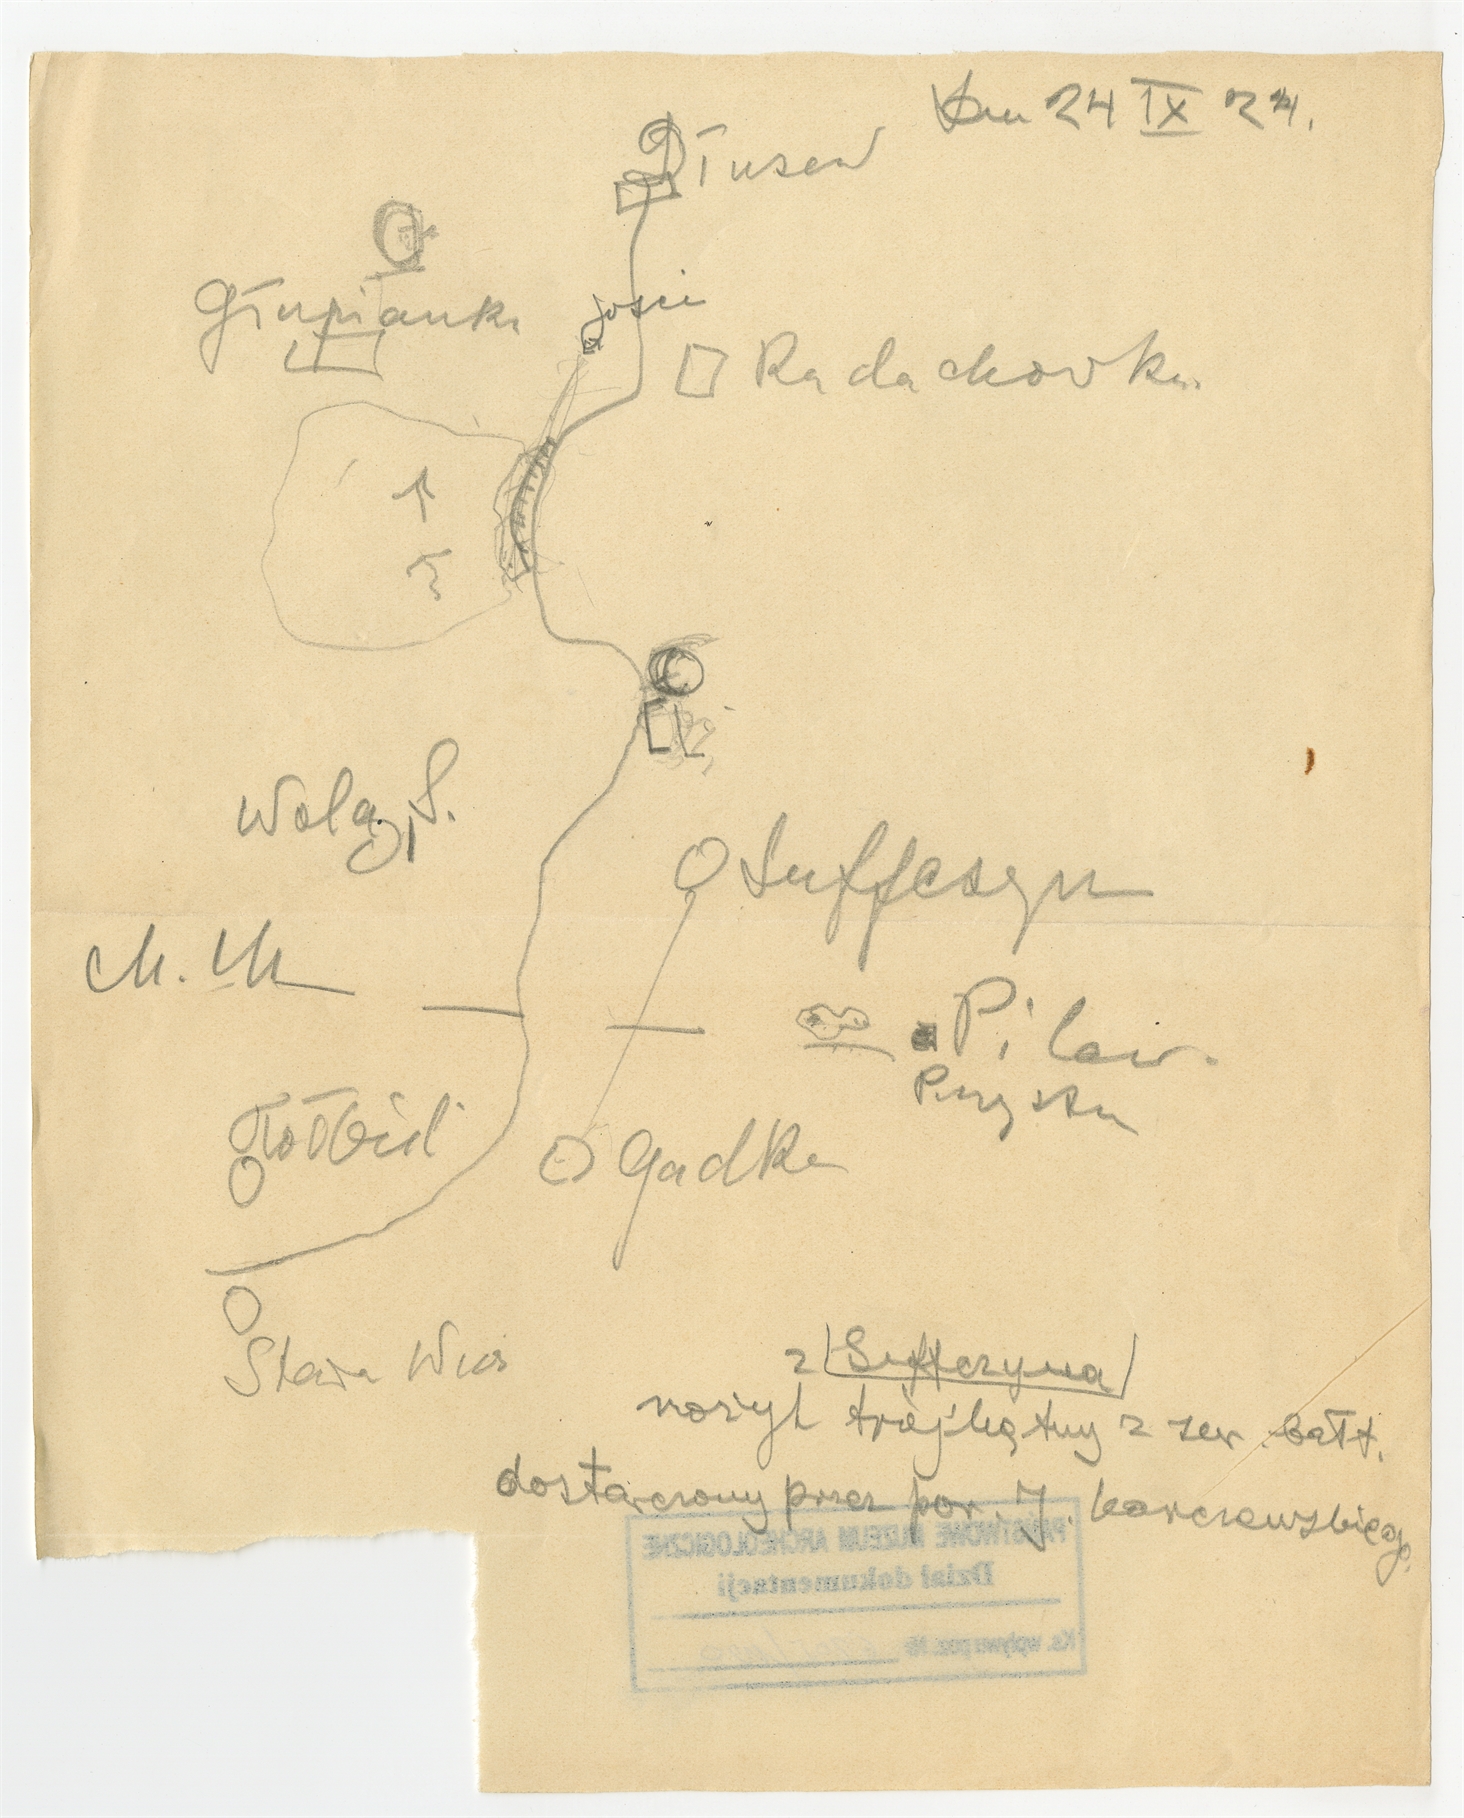 24 IX 24.
Dłużew
Głupianka
gości
Radachówka
Wola S.
Suffczyn
M. M
Pilaw.
Kołbiel
Gadka
Stara Wieś
z Suffczyna
naszyj trójkątny z zew. bałt.
dostarczony przez por. J. Karczewskiego.
PAŃSTWOWE MUZEUM ARCHEOLOGICZNE
Dział dokumentacji
Ks. wpływu poz. №